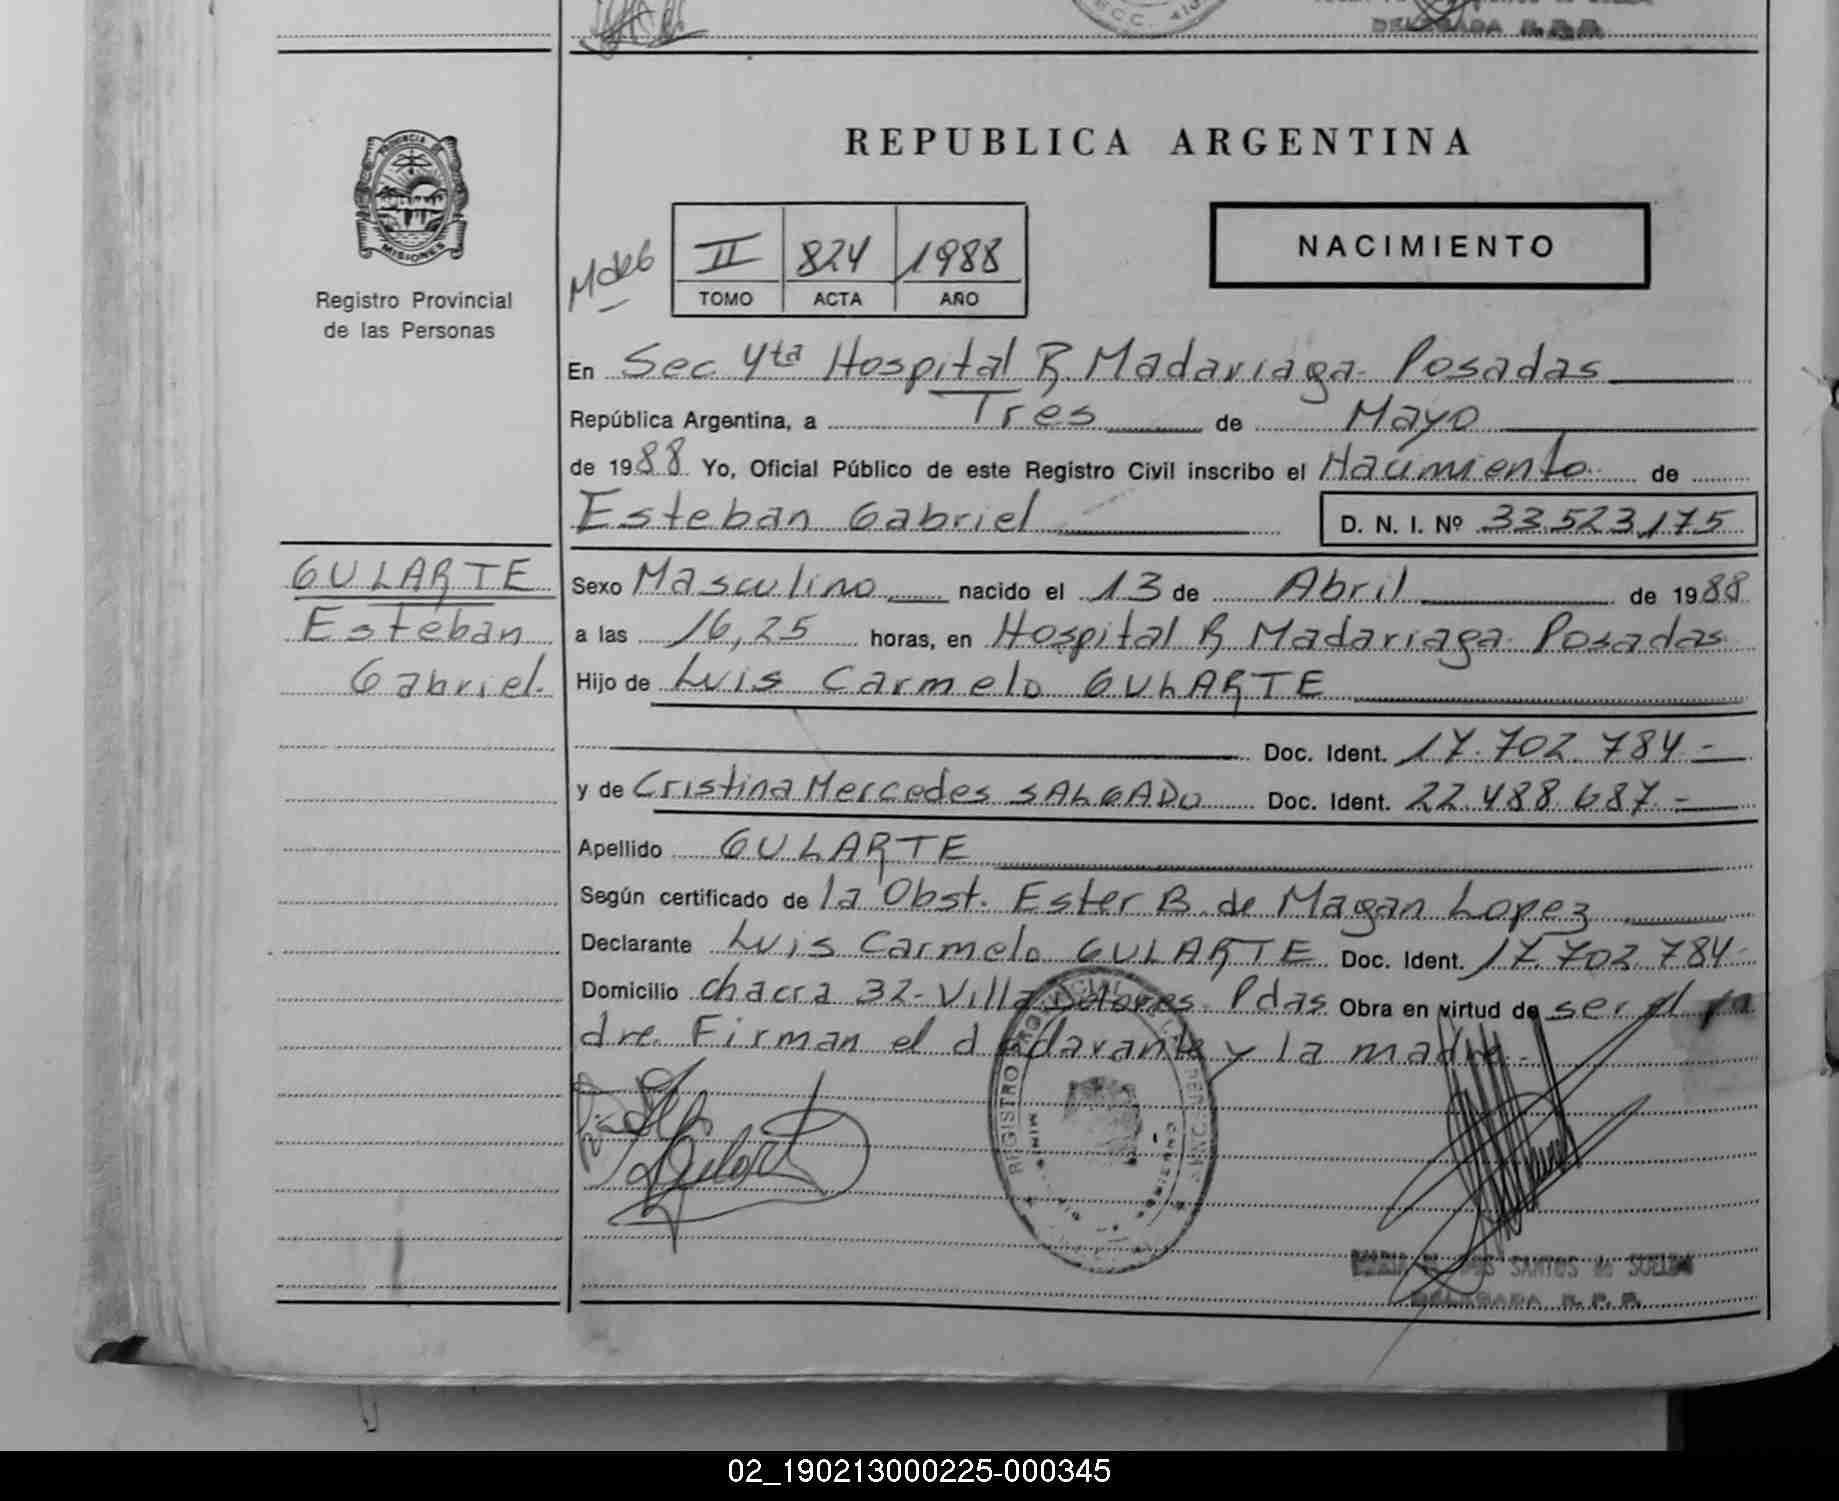 DELEGADA R. P. P.
REPUBLICA ARGENTINA
PROVINCIA DE
MISIONES
Registro Provincial
de las Personas
II 824 1988
TOMO ACTA AÑO
NACIMIENTO
En Sec 4ta Hospital R. Madariaga - Posadas
República Argentina, a Tres de Mayo
de 1988 Yo, Oficial Público de este Registro Civil inscribo el Nacimiento de
Esteban Gabriel D. N. I. Nº 33.523.175
GULARTE
Esteban
Gabriel.
Sexo Masculino nacido el 13 de Abril de 1988
a las 16,25 horas, en Hospital R Madariaga - Posadas
Hijo de Luis Carmelo GULARTE
Doc. Ident. 17.702.784 -
y de Cristina Mercedes SALGADO Doc. Ident. 22.488.687 -
Apellido GULARTE
Según certificado de la Obst. Ester B. de Magan Lopez
Declarante Luis Carmelo GULARTE Doc. Ident. 17.702.784-
Domicilio chacra 32- Villa Dolores - Pdas Obra en virtud de ser el pa
dre. Firman el declarante y la madre.-
REGISTRO PROVINCIAL DE LAS PERSONAS
DOS SANTOS de SUELDO
DELEGADA R. P. P.
02_190213000225-000345